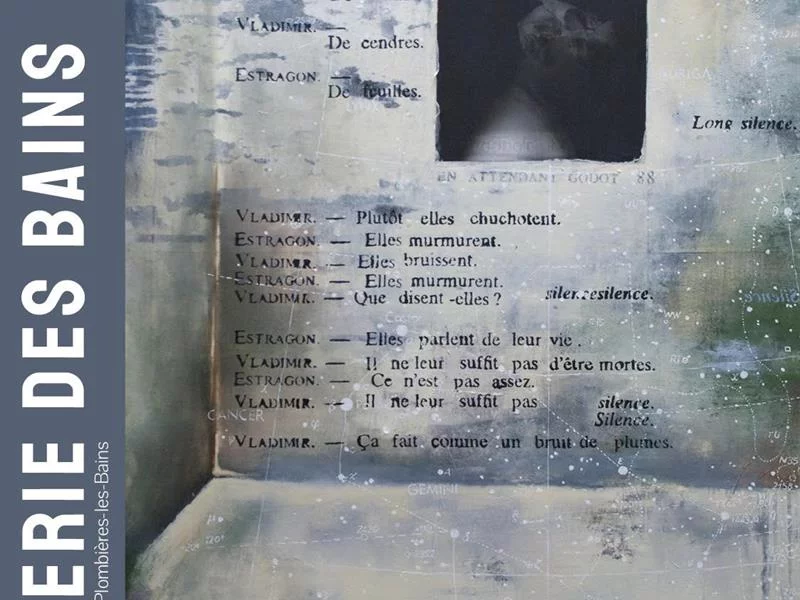 ERIE DES BAINS
Plombières-les-Bains
VLADIMIR. —
De cendres.
ESTRAGON. —
De feuilles.
AURIGA
Long silence.
EN ATTENDANT GODOT 88
VLADIMIR. — Plutôt elles chuchotent.
ESTRAGON. — Elles murmurent.
VLADIMIR. — Elles bruissent.
ESTRAGON. — Elles murmurent.
VLADIMIR. — Que disent-elles ? silencesilence.
Silence
Castor
ESTRAGON. — Elles parlent de leur vie.
VLADIMIR. — Il ne leur suffit pas d'être mortes.
ESTRAGON. — Ce n'est pas assez.
VLADIMIR. — Il ne leur suffit pas silence.
Silence.
CANCER
VLADIMIR. — Ça fait comme un bruit de plumes.
GEMINI